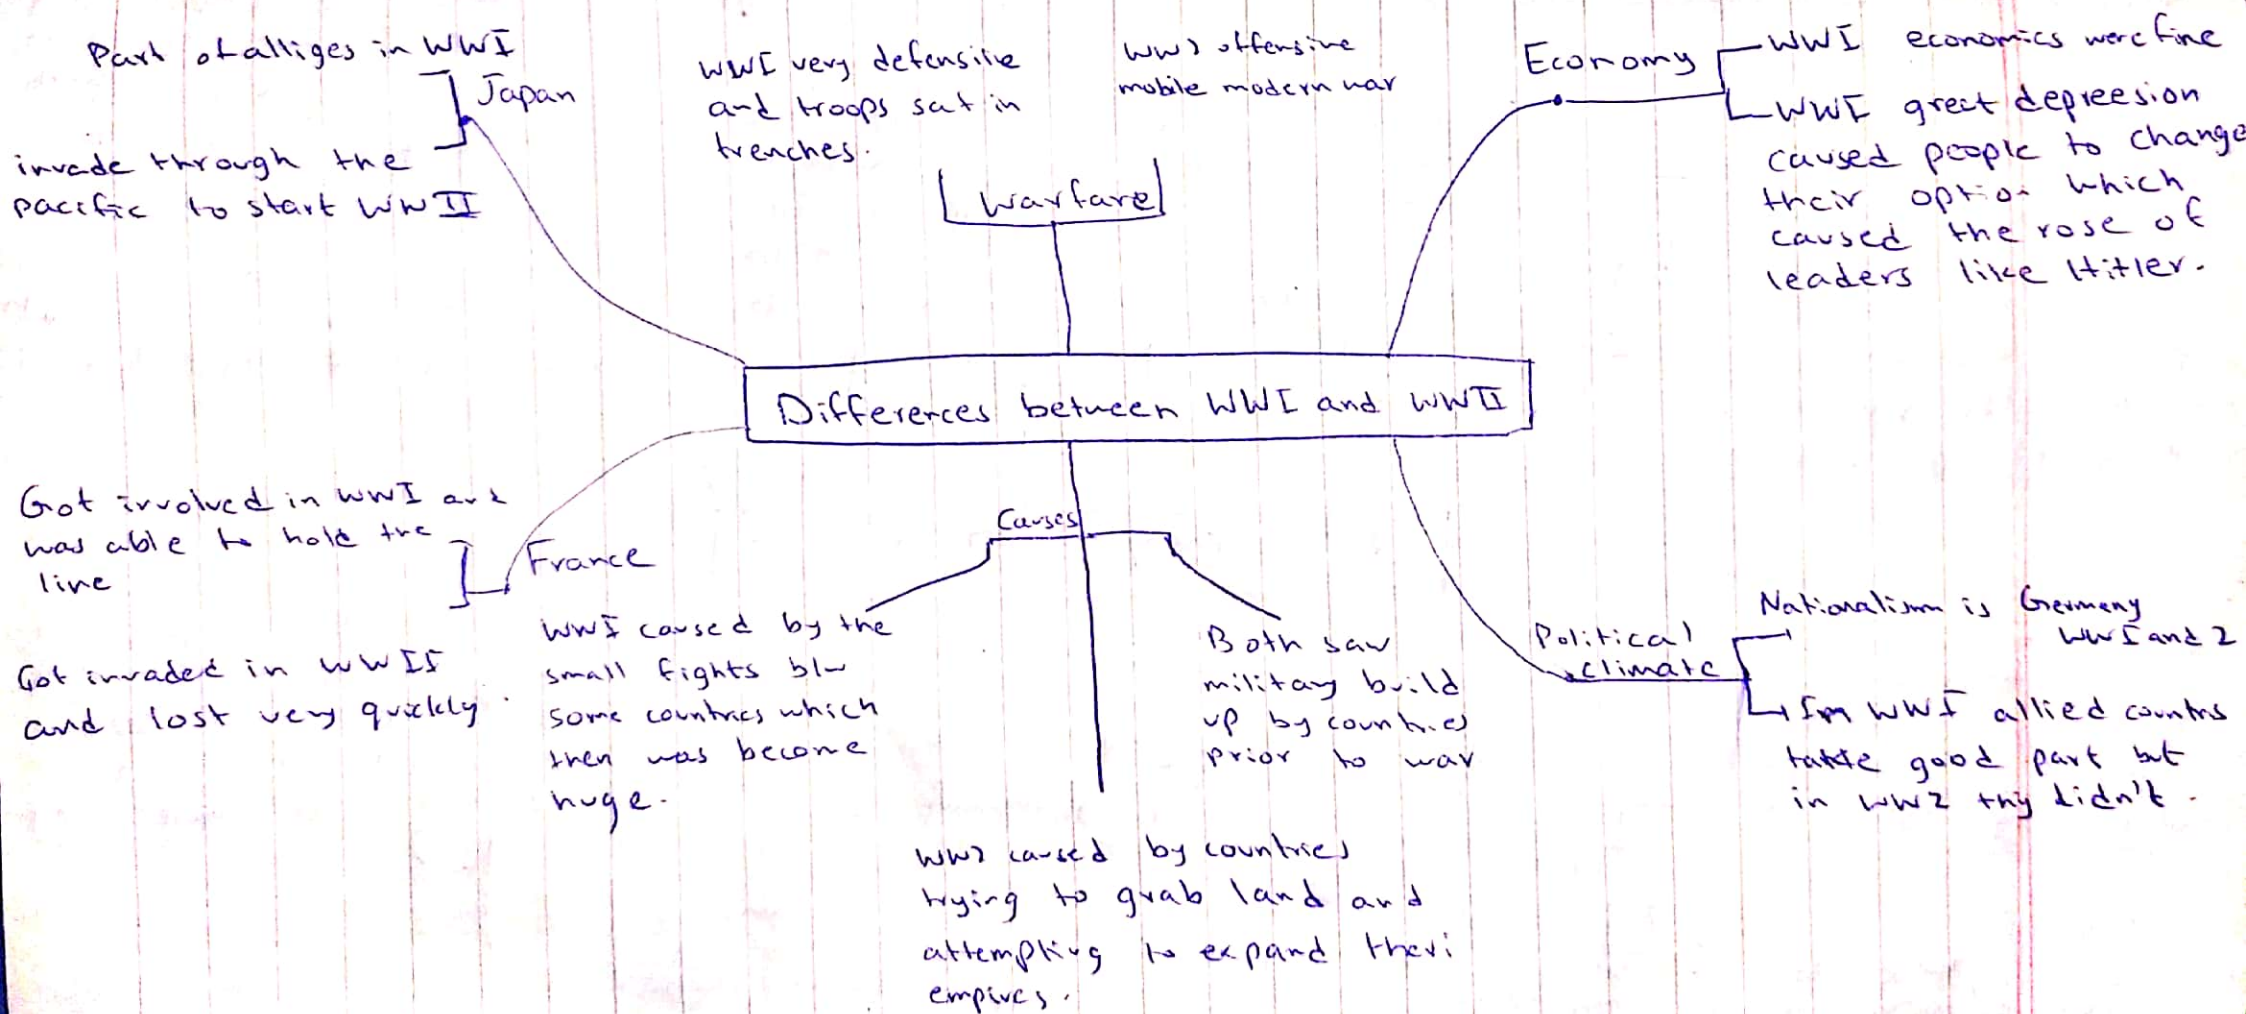 Part of alliges in WWI
Japan
invade through the
pacific to start WWII
WWI very defensive
and troops sat in
trenches.
WW2 offensive
mobile modern war
Warfare
Economy
WWI economics were fine
WWI great depreesion
caused people to change
their option which
caused the rose of
leaders like Hitler.
Differences between WWI and WWII
Got involved in WWI and
was able to hold the
line
France
Got invaded in WWII
and lost very quickly.
Causes
WWI caused by the
small fights b/w
some countries which
then was become
huge.
Both saw
military build
up by countries
prior to war
WW2 caused by countries
trying to grab land and
attempting to expand theri
empires.
Political
climate
Nationalism is Germeny
WWI and 2
In WWI allied countris
take good part but
in WW2 thy didn't.